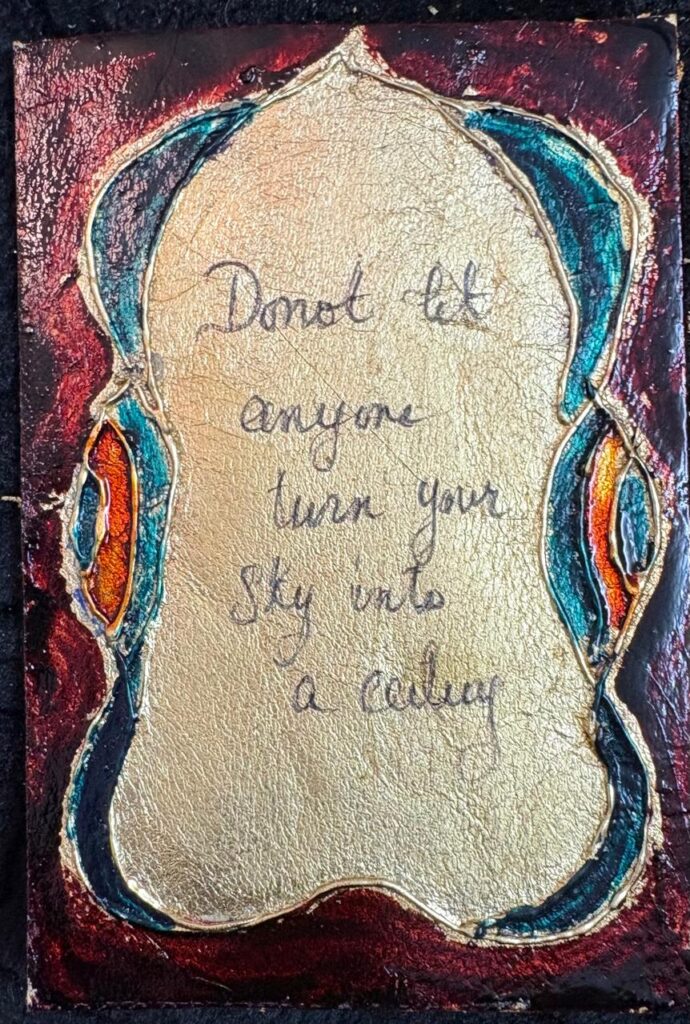 Donot let
anyone
turn your
sky into
a ceiling